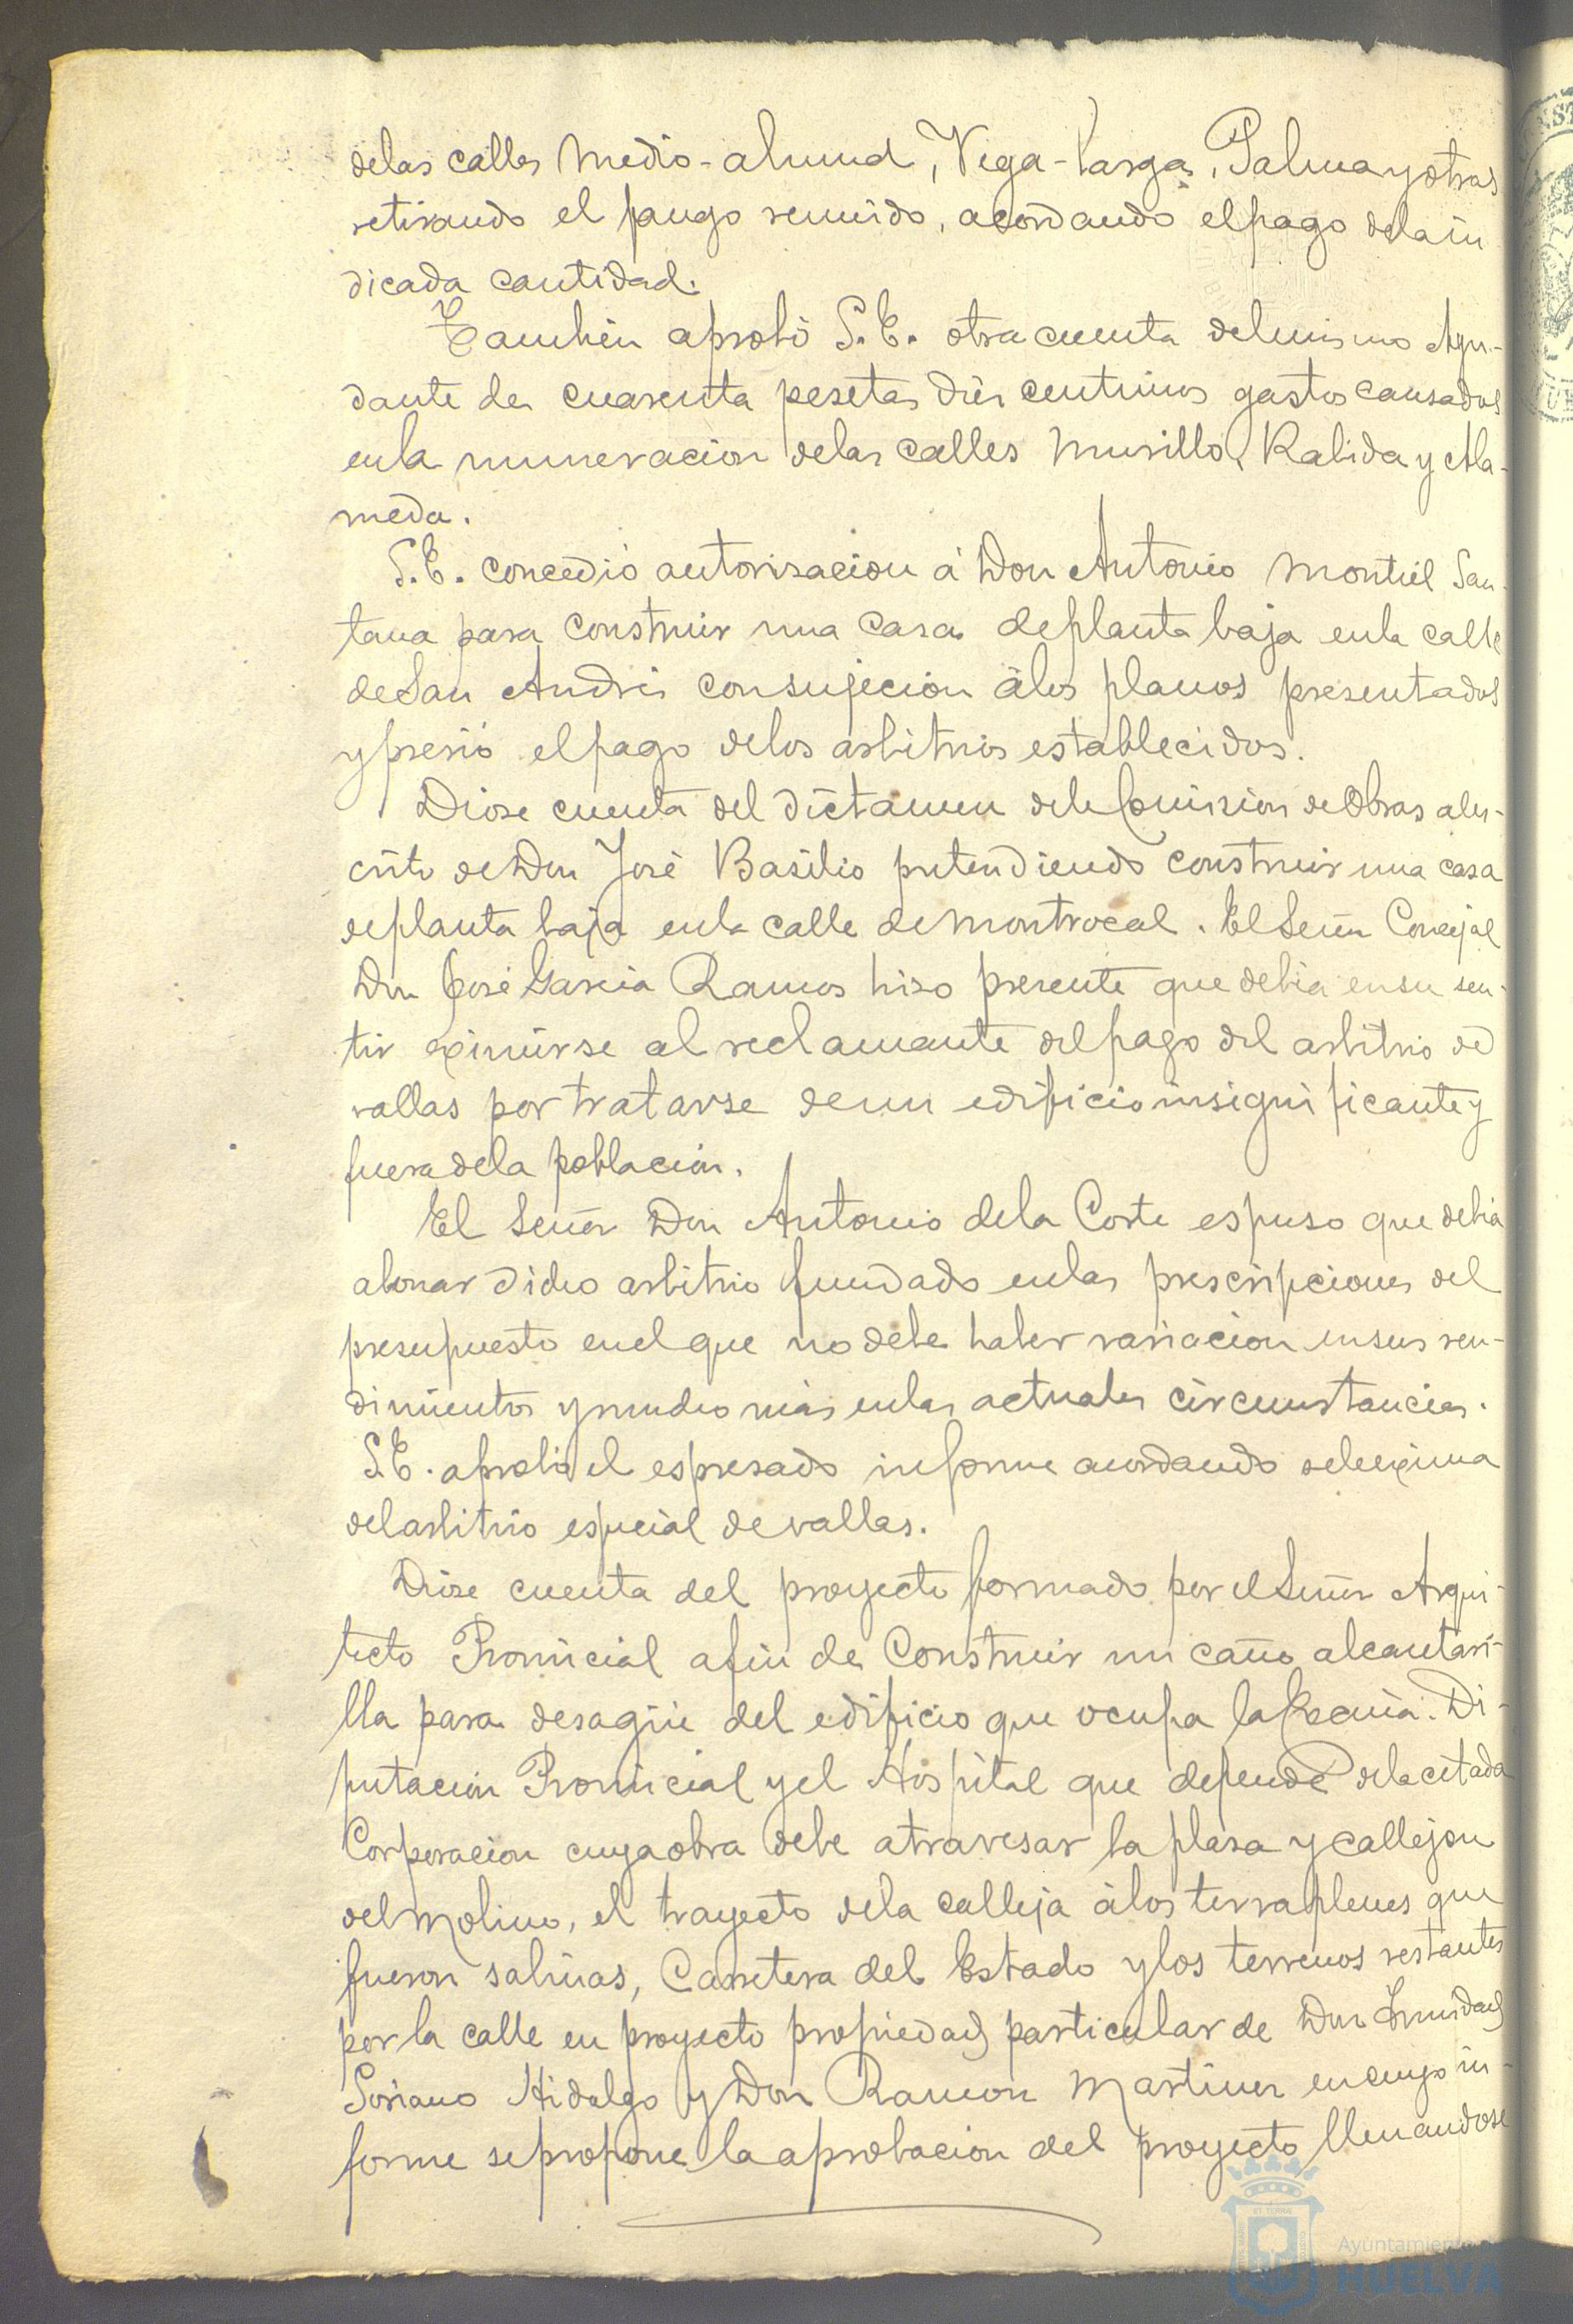 delas calles Medio-almud, Vega-larga, Palma y otras
retirando el fango reunido, acordando el pago dela in
dicada cantidad.
Tambien aprobó S.E. otra cuenta del mismo Ayu-
dante de cuarenta pesetas diez centimos gastos causados
en la numeracion delas calles Murillo, Rabida y Ala-
meda.
S.E. concedió autorisacion á Don Antonio Montiel San-
tana para construir una casa de planta baja en la calle
de San Andrés con sujecion álos planos presentados
y previo el pago delos arbitrios establecidos.
Diose cuenta del dictamen dela Comision de Obras al es-
crito de Don José Basilio pretendiendo construir una casa
de planta baja en la calle de Montrocal. El Señor Concejal
Don José Garcia Ramos hiso presente que debia en su sen-
tir eximirse al reclamante del pago del arbitrio de
vallas por tratarse de un edificio insignificante y
fuera dela poblacion.
El Señor Don Antonio dela Corte espuso que debia
abonar dicho arbitrio fundado en las prescripciones del
presupuesto en el que no debe haber variacion en sus ren-
dimientos y mucho más en las actuales circunstancias.
S.E. aprobó el espresado informe acordando se le exima
del arbitrio especial de vallas.
Diose cuenta del proyecto formado por el Señor Arqui-
tecto Provincial a fin de construir un caño alcantari-
lla para desagüe del edificio que ocupa la Excma. Di-
putacion Provincial y el Hospital que depende dela citada
Corporacion cuya obra debe atravesar la plasa y callejon
del Molino, el trayecto dela calleja álos terraplenes que
fueron salinas, Carretera del Estado y los terrenos restantes
por la calle en proyecto propiedad particular de Don Trinidad
Soriano Hidalgo y Don Ramon Martinez en cuyo in-
forme se propone la aprobacion del proyecto llenandose
Ayuntamiento de
HUELVA